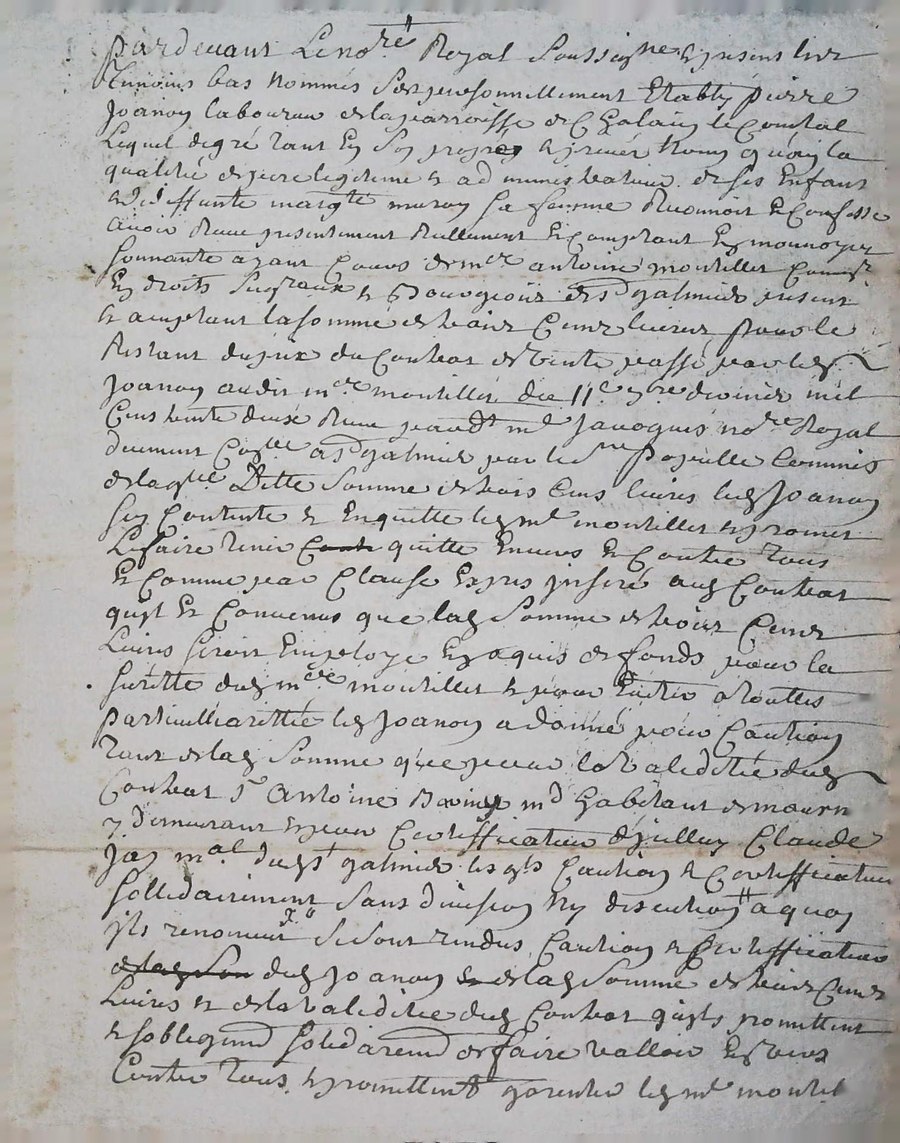 pardevant Le no.re Royal Soussigne & presens les
Temoins bas nommés S'est personnellement Etably pierre
Joanon laboureur de la parroisse de Chalain le Comtal
Lequel de gré tant En Son propre & privé nom qu'en la
qualité de pere legitime & administrateur de ses Enfans
& de deffunte margte muron sa femme Reconnoit & Confesse
avoir Receu presentement Reellement & Comptant En monnoyes
Sonnante ayant Cours de mre antoine montillet Commisr.
En droits Seigraux & Bourgeois de St galmier present
& aceptant la somme de trois Cens livres pour le
Restant du prix du Contrat de vente passé par led.
Joanon audit mre montillet du 11e 7bre dernier mil
Cens trente deux Receu pardt me Javogues no.re Royal
deument Con.lé a St galmier par le Sr Commis
de laq.lle Ditte Somme de trois Cens livres led. Joanon
se Contente & En quitte led. me montillet & promet
Le faire tenir quitte Envers & Contre tous
& Comme par Clause Expres inseré aud. Contrat
quil Est Convenus que lad. Somme de trois Cens
Livres seroit Employé En aquis de fonds pour la
suretté dud. mre montillet & pour Eviter a touttes
particulliarittée led. Joanon a donné pour Caution
tant de lad. Somme que pour la validitée dud.
Contrat Sr Antoine md habitant de
y demeurant & pour Certifficateur d'jcelluy Claude
Jay mal dud. St galmier lesqls Caution & Certifficateur
sollidairement sans division ny discution a quoy
jls renoncent se sont rendus Caution & Certifficateur
de lad. Som dud. Joanon & de lad. Somme de trois Cens
Livres & de la validitée dud. Contrat quils promettent
& soblegend solidaremd de faire valloir Envers
Contre tous & promettent garentir led. me montil